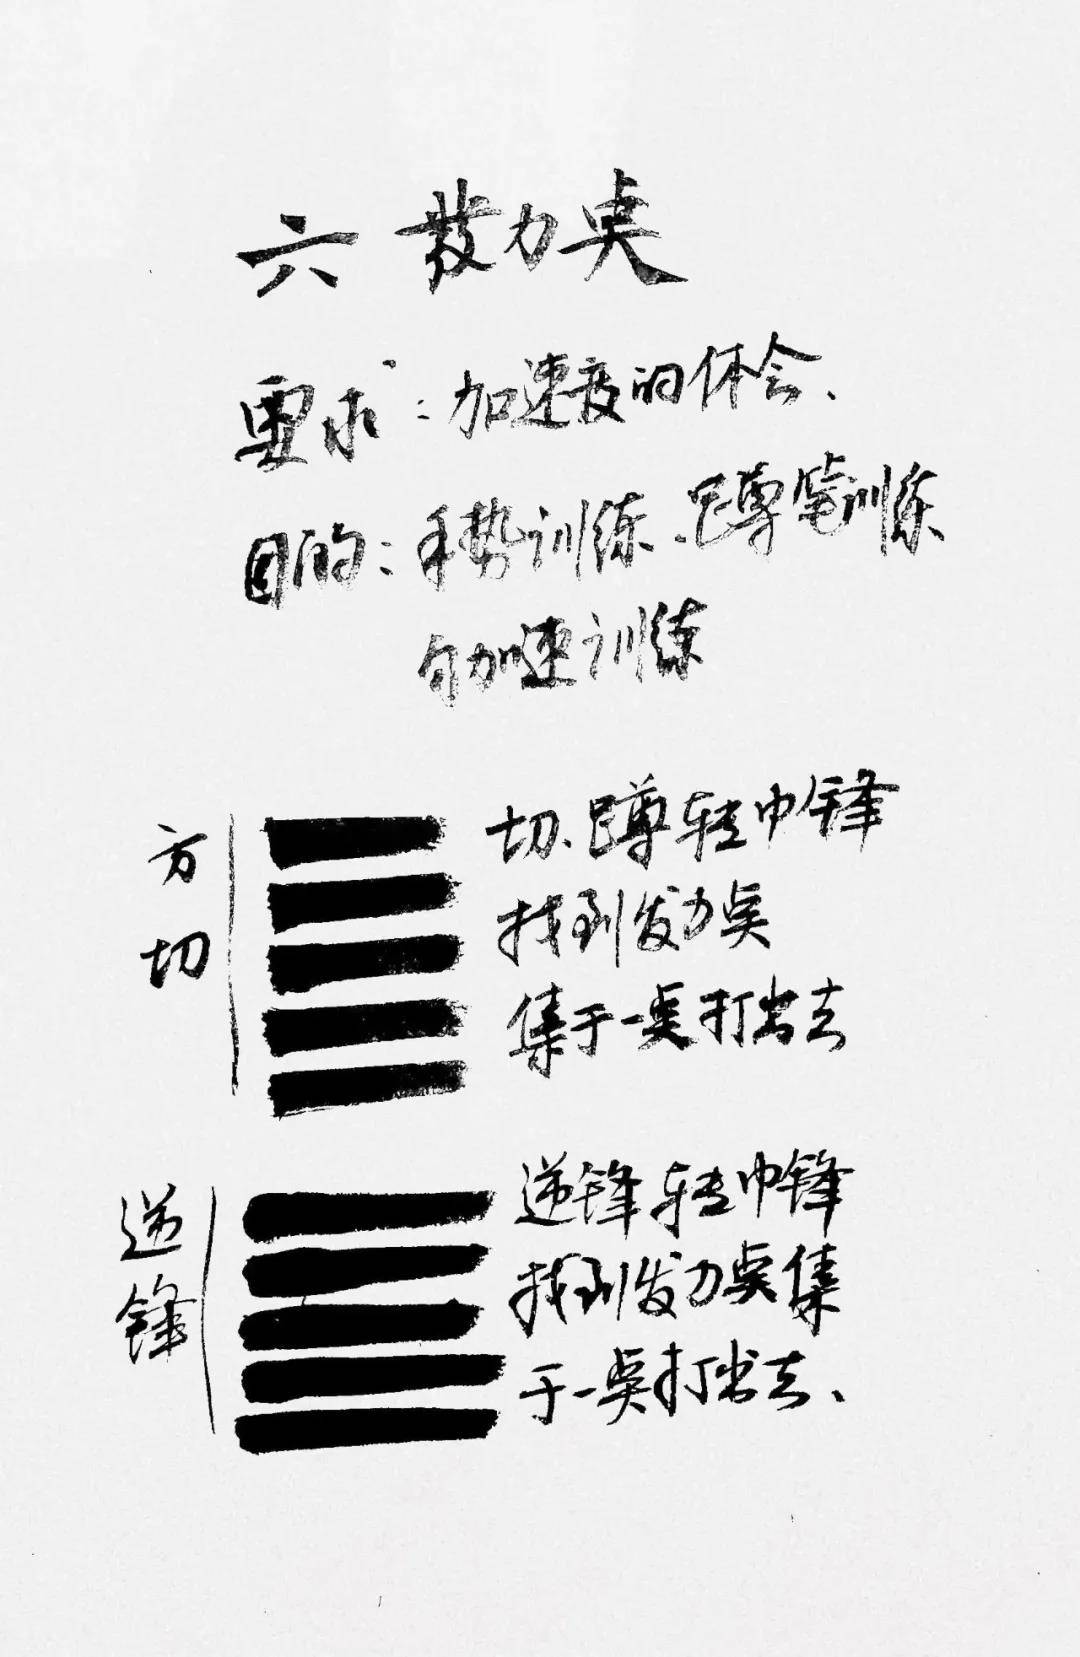 六 發力点
要求：加速度的体会、
目的：手势训练、蹲笔训练
匀加速训练
方切
切、蹲转中锋
找到发力点
集于一点打出去
逆锋
逆锋转中锋
找到发力点集
于一点打出去、